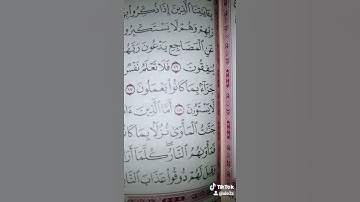 بِـَٔايَٰتِنَا ٱلَّذِينَ إِذَا ذُكِّرُوا۟ بِهَا
رَبِّهِمْ وَهُمْ لَا يَسْتَكْبِرُونَ
عَنِ ٱلْمَضَاجِعِ يَدْعُونَ رَبَّهُمْ
يُنفِقُونَ ١٦ فَلَا تَعْلَمُ نَفْسٌ
جَزَآءًۢ بِمَا كَانُوا۟ يَعْمَلُونَ ١٧
لَّا يَسْتَوُۥنَ ١٨ أَمَّا ٱلَّذِينَ ءَا
جَنَّٰتُ ٱلْمَأْوَىٰ نُزُلًۢا بِمَا كَا
فَمَأْوَىٰهُمُ ٱلنَّارُ كُلَّمَآ أَرَا
وَقِيلَ لَهُمْ ذُوقُوا۟ عَذَابَ ٱلنَّا
TikTok